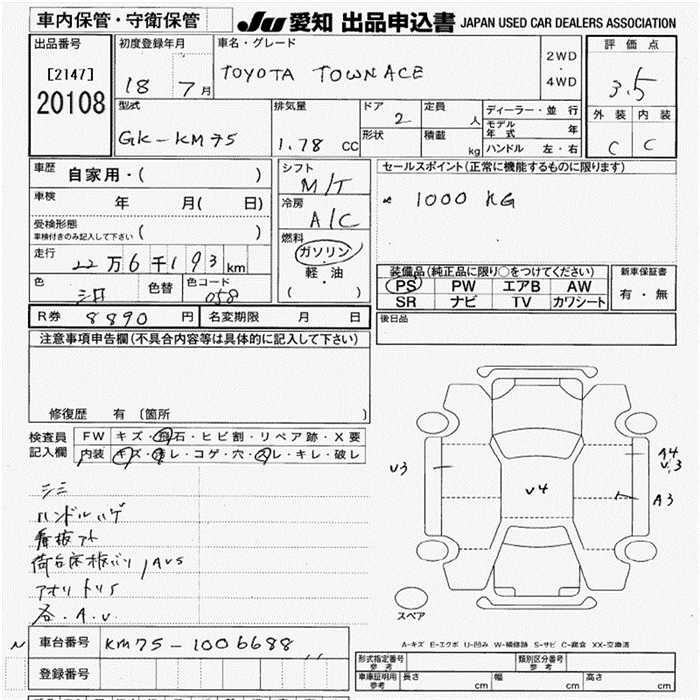 車内保管・守衛保管
JU 愛知 出品申込書 JAPAN USED CAR DEALERS ASSOCIATION
出品番号
[2147]
20108
初度登録年月
18 7月
車名・グレード
TOYOTA TOWNACE
2WD
・
4WD
評価点
3.5
外装 内装
C C
型式
GK-KM75
排気量
1.78 CC
ドア
2
形状
定員
人
積載
kg
ディーラー・並行
モデル年式 年
ハンドル 左・右
車歴
自家用・( )
車検
年 月( 日)
受検形態
車検付きのみ記入して下さい ( )
走行
22万6千193km
色
シロ
色替
色コード
058
シフト
M/T
冷房
A/C
燃料
ガソリン
・
軽油
( )
セールスポイント(正常に機能するものに限ります)
1000 KG
装備品(純正品に限り○をつけてください)
PS PW エアB AW
SR ナビ TV カワシート
新車保証書
有・無
後日品
R券 8890 円
名変期限 月 日
注意事項申告欄(不具合内容等は具体的に記入して下さい)
修復歴 有 (箇所 )
検査員
記入欄
FW キズ・飛石・ヒビ割・リペア跡・X要
内装 キズ・汚レ・コゲ・穴・スレ・キレ・破レ
シミ
ハンドルハゲ
看板アト
荷台床板バリ, AUS
アオリトリ
各. A.U.
V3
V4
A4
V.3
A3
スペア
A-キズ E-エクボ U-凹み W-補修跡 S-サビ C-腐食 XX-交換済
車台番号
KM75-1006688
登録番号
形式指定番号
参考
類別区分番号
参考
車庫証明用
参考
長さ cm
幅 cm
高さ cm